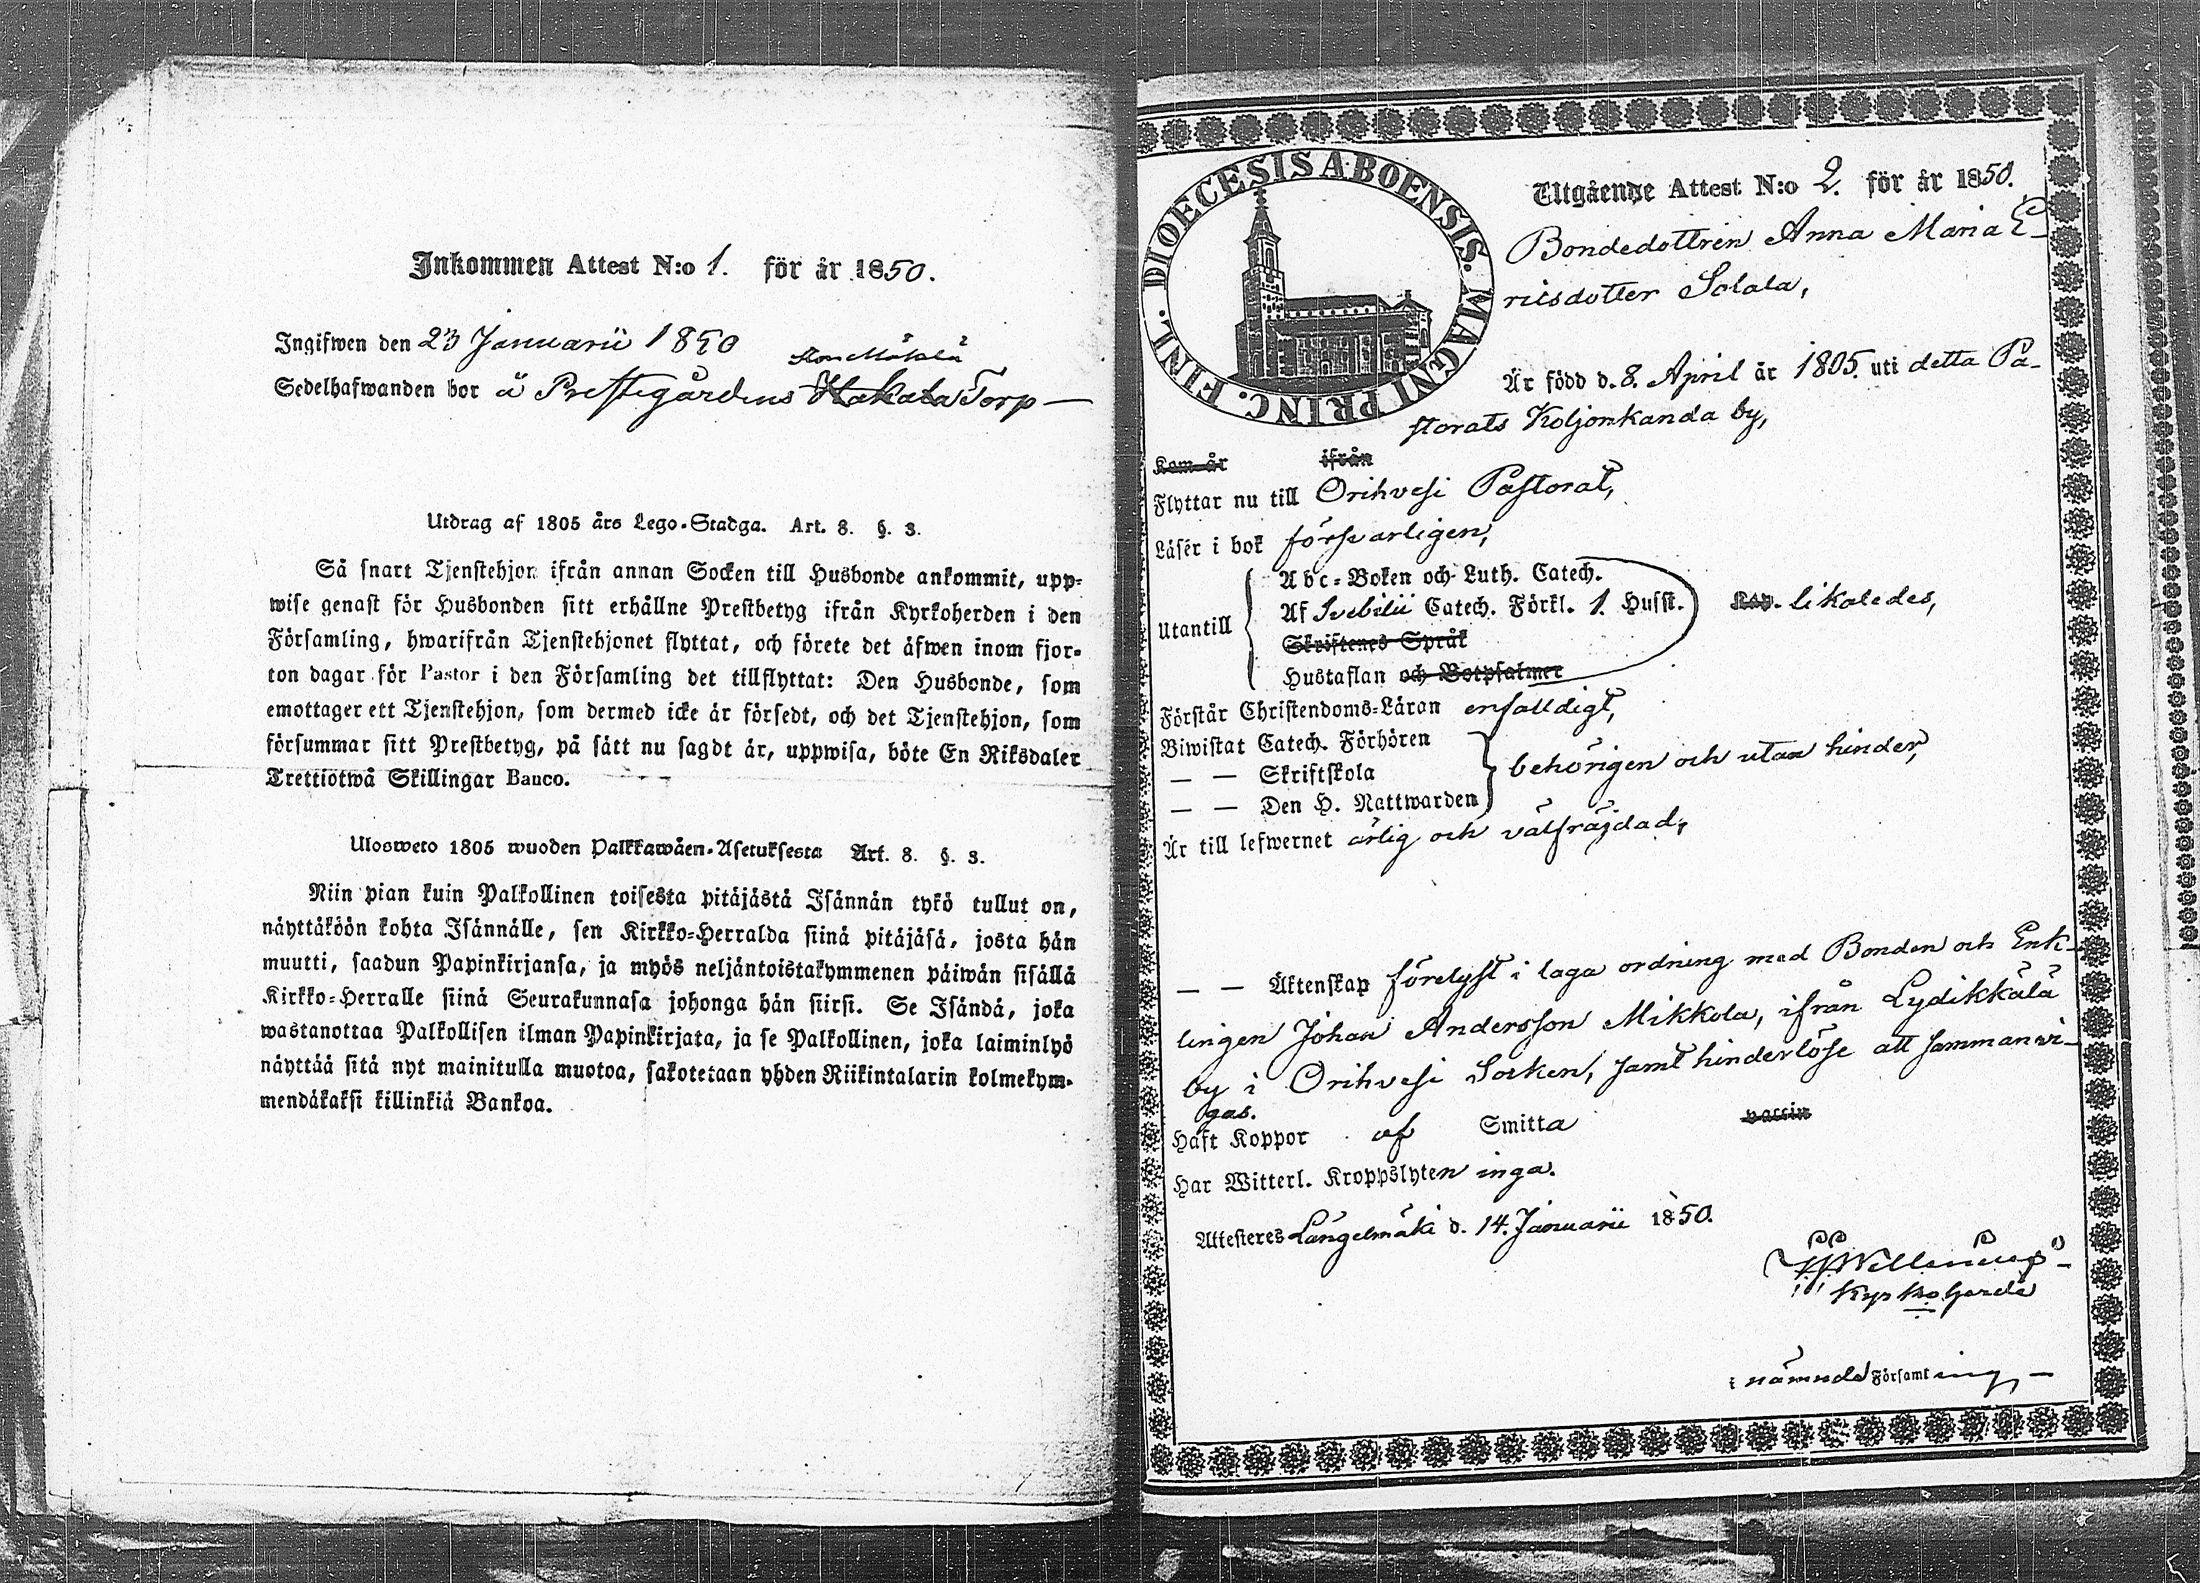 Inkommen Attest N:o 1. för år 1850.
Ingifwen den 23 Januarii 1850
Sedelhafwanden bor å Prestegårdens Hakala Torp —
Utdrag af 1805 års Lego-Stadga. Art. 8. §. 3.
Så snart Tjenstehjon ifrån annan Socken till Husbonde ankommit, upp-
wise genast för Husbonden sitt erhållne Prestbetyg ifrån Kyrkoherden i den
Församling, hwarifrån Tjenstehjonet flyttat, och förete det äfwen inom fjor-
ton dagar för Pastor i den Församling det tillflyttat: Den Husbonde, som
emottager ett Tjenstehjon, som dermed icke är försedt, och det Tjenstehjon, som
försummar sitt Prestbetyg, på sätt nu sagdt är, uppwisa, böte En Riksdaler
Trettiotwå Skillingar Banco.
Ulosweto 1805 wuoden Palkkawäen-Asetuksesta Art. 8. §. 3.
Niin pian kuin Palkollinen toisesta pitäjästä Isännän tykö tullut on,
näyttäköön kohta Isännälle, sen Kirkko-Herralda siinä pitäjäsä, josta hän
muutti, saadun Papinkirjansa, ja myös neljäntoistakymmenen päiwän sisällä
Kirkko-Herralle siinä Seurakunnasa johonga hän siirsi. Se Isändä, joka
wastanottaa Palkollisen ilman Papinkirjata, ja se Palkollinen, joka laiminlyö
näyttää sitä nyt mainitulla muotoa, sakotetaan yhden Riikintalarin kolmekym-
mendäkaksi killinkiä Bankoa.
DIOECESIS ABOENSIS. MAGNI PRINC. FINL.
Utgående Attest N:o 2. för år 1850.
Bondedottren Anna Maria E-
ricsdotter Solala,
Är född d. 8. April år 1805. uti detta Pa-
storats Koljonkanda by,
Kom år ifrån
Flyttar nu till Orihvesi Pastorat,
Läser i bok försvarligen,
Utantill
Abc-Boken och Luth. Catech.
Af Svebilii Catech. Förkl. 1. Husst. likaledes,
Skriftenes Språk
Hustaflan och Botpsalmer
Förstår Christendoms-Läran enfalldigt,
Biwistat Catech. Förhören
— — Skriftskola behörigen och utan hinder,
— — Den H. Nattwarden
Är till lefwernet ärlig och välfräjdad,
— — Äktenskap förelyst i laga ordning med Bonden och Enk-
lingen Johan Andersson Mikkola, ifrån Lydikkälä
by i Orihvesi Socken, samt hinderlöse att sammanvi-
gas.
Haft Koppor af Smitta vaccin
Har Witterl. Kroppslyten inga.
Attesteres Längelmäki d. 14. Januarii 1850.
Kyrkoherde
i nämnde Församling, —